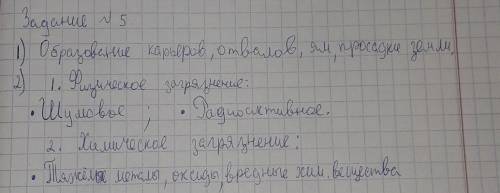 Задание №5
1) Образование карьеров, отвалов, ям, просадки земли.
2) 1. Физическое загрязнение:
• Шумовое ; • Радиоактивное.
2. Химическое загрязнение:
• Тяжёлые металы, оксиды, вредные хим. вещества